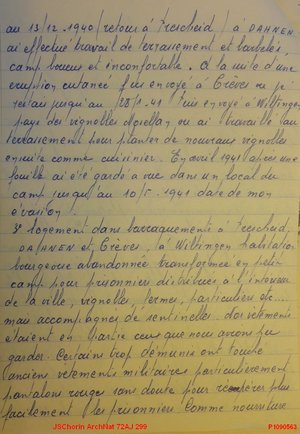 au 13/12 - 1940 / retour à Preischeid / à DAHNEN
ai effectué travail de terrassement et barbelés,
camp boueux et inconfortable. A la suite d'une
éruption cutanée fus envoyé à Trèves ou je
restai jusqu'au 1941 fus envoyé à Wiltingen
pays des vignobles ou ai travaillé au
terrassement pour planter de nouveaux vignobles
ensuite comme cuisinier. En avril 1941 après une
fouille ai été gardé à vue dans un local du
camp jusqu'au 10/5 - 1941 date de mon
évasion.
3° Logement dans barraquements à Preischeid,
DAHNEN et Trèves, à Wiltingen habitation
bourgeoise abandonnée transformée en petit
camp pour prisonniers distribués à l'intérieur
de la ville, vignobles, fermes, particuliers etc...
mais accompagnés de sentinelles. Les vêtements
étaient en partie ceux que nous avions pu
garder. Certains trop démunis ont touché
anciens vêtements militaires particulièrement
pantalons rouges sans doute pour repérer plus
facilement les prisonniers. Comme nourriture
JSChorin ArchNat 72AJ 299
P1090563